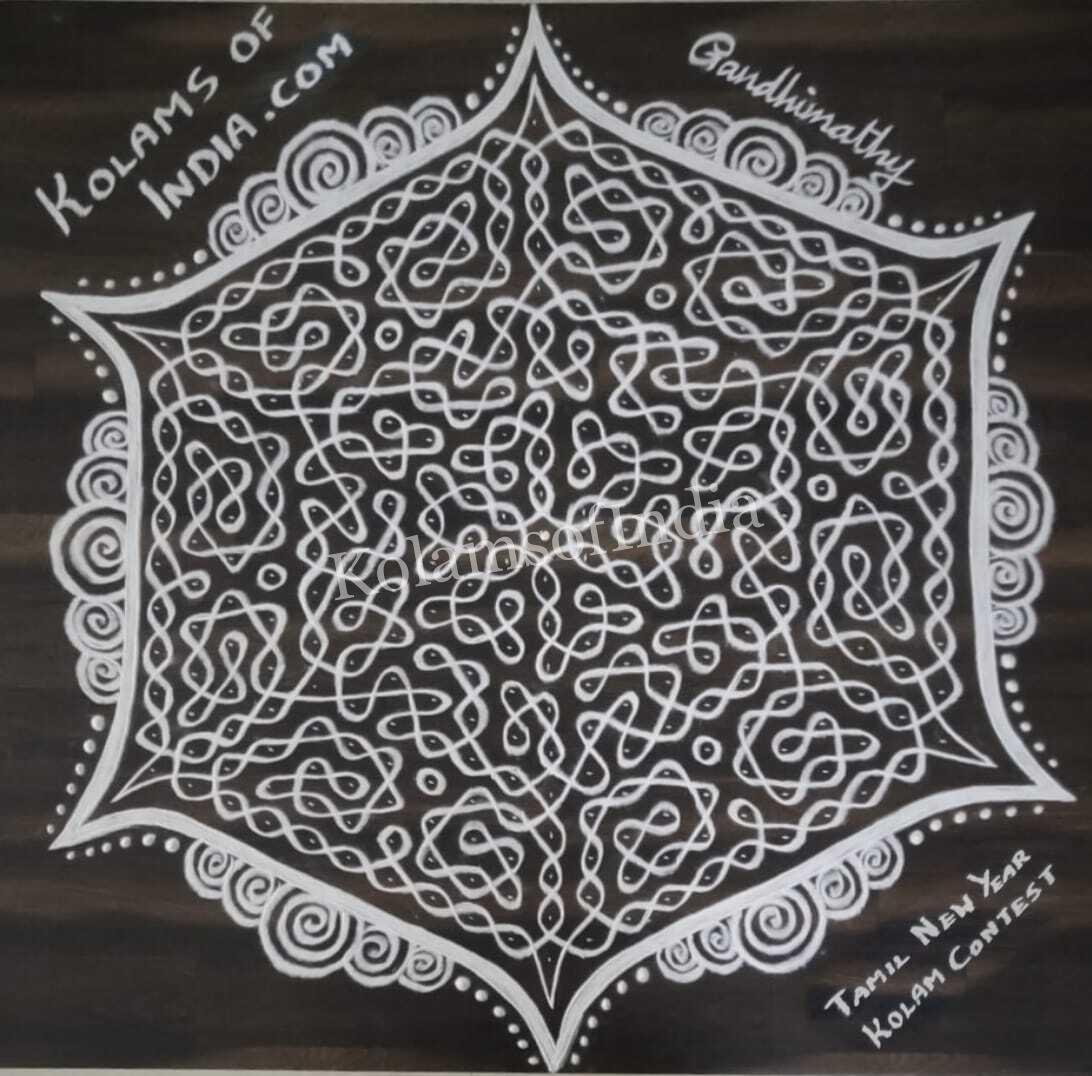 KOLAMS OF
INDIA.COM
Gandhimathy
KolamsofIndia
TAMIL NEW YEAR
KOLAM CONTEST